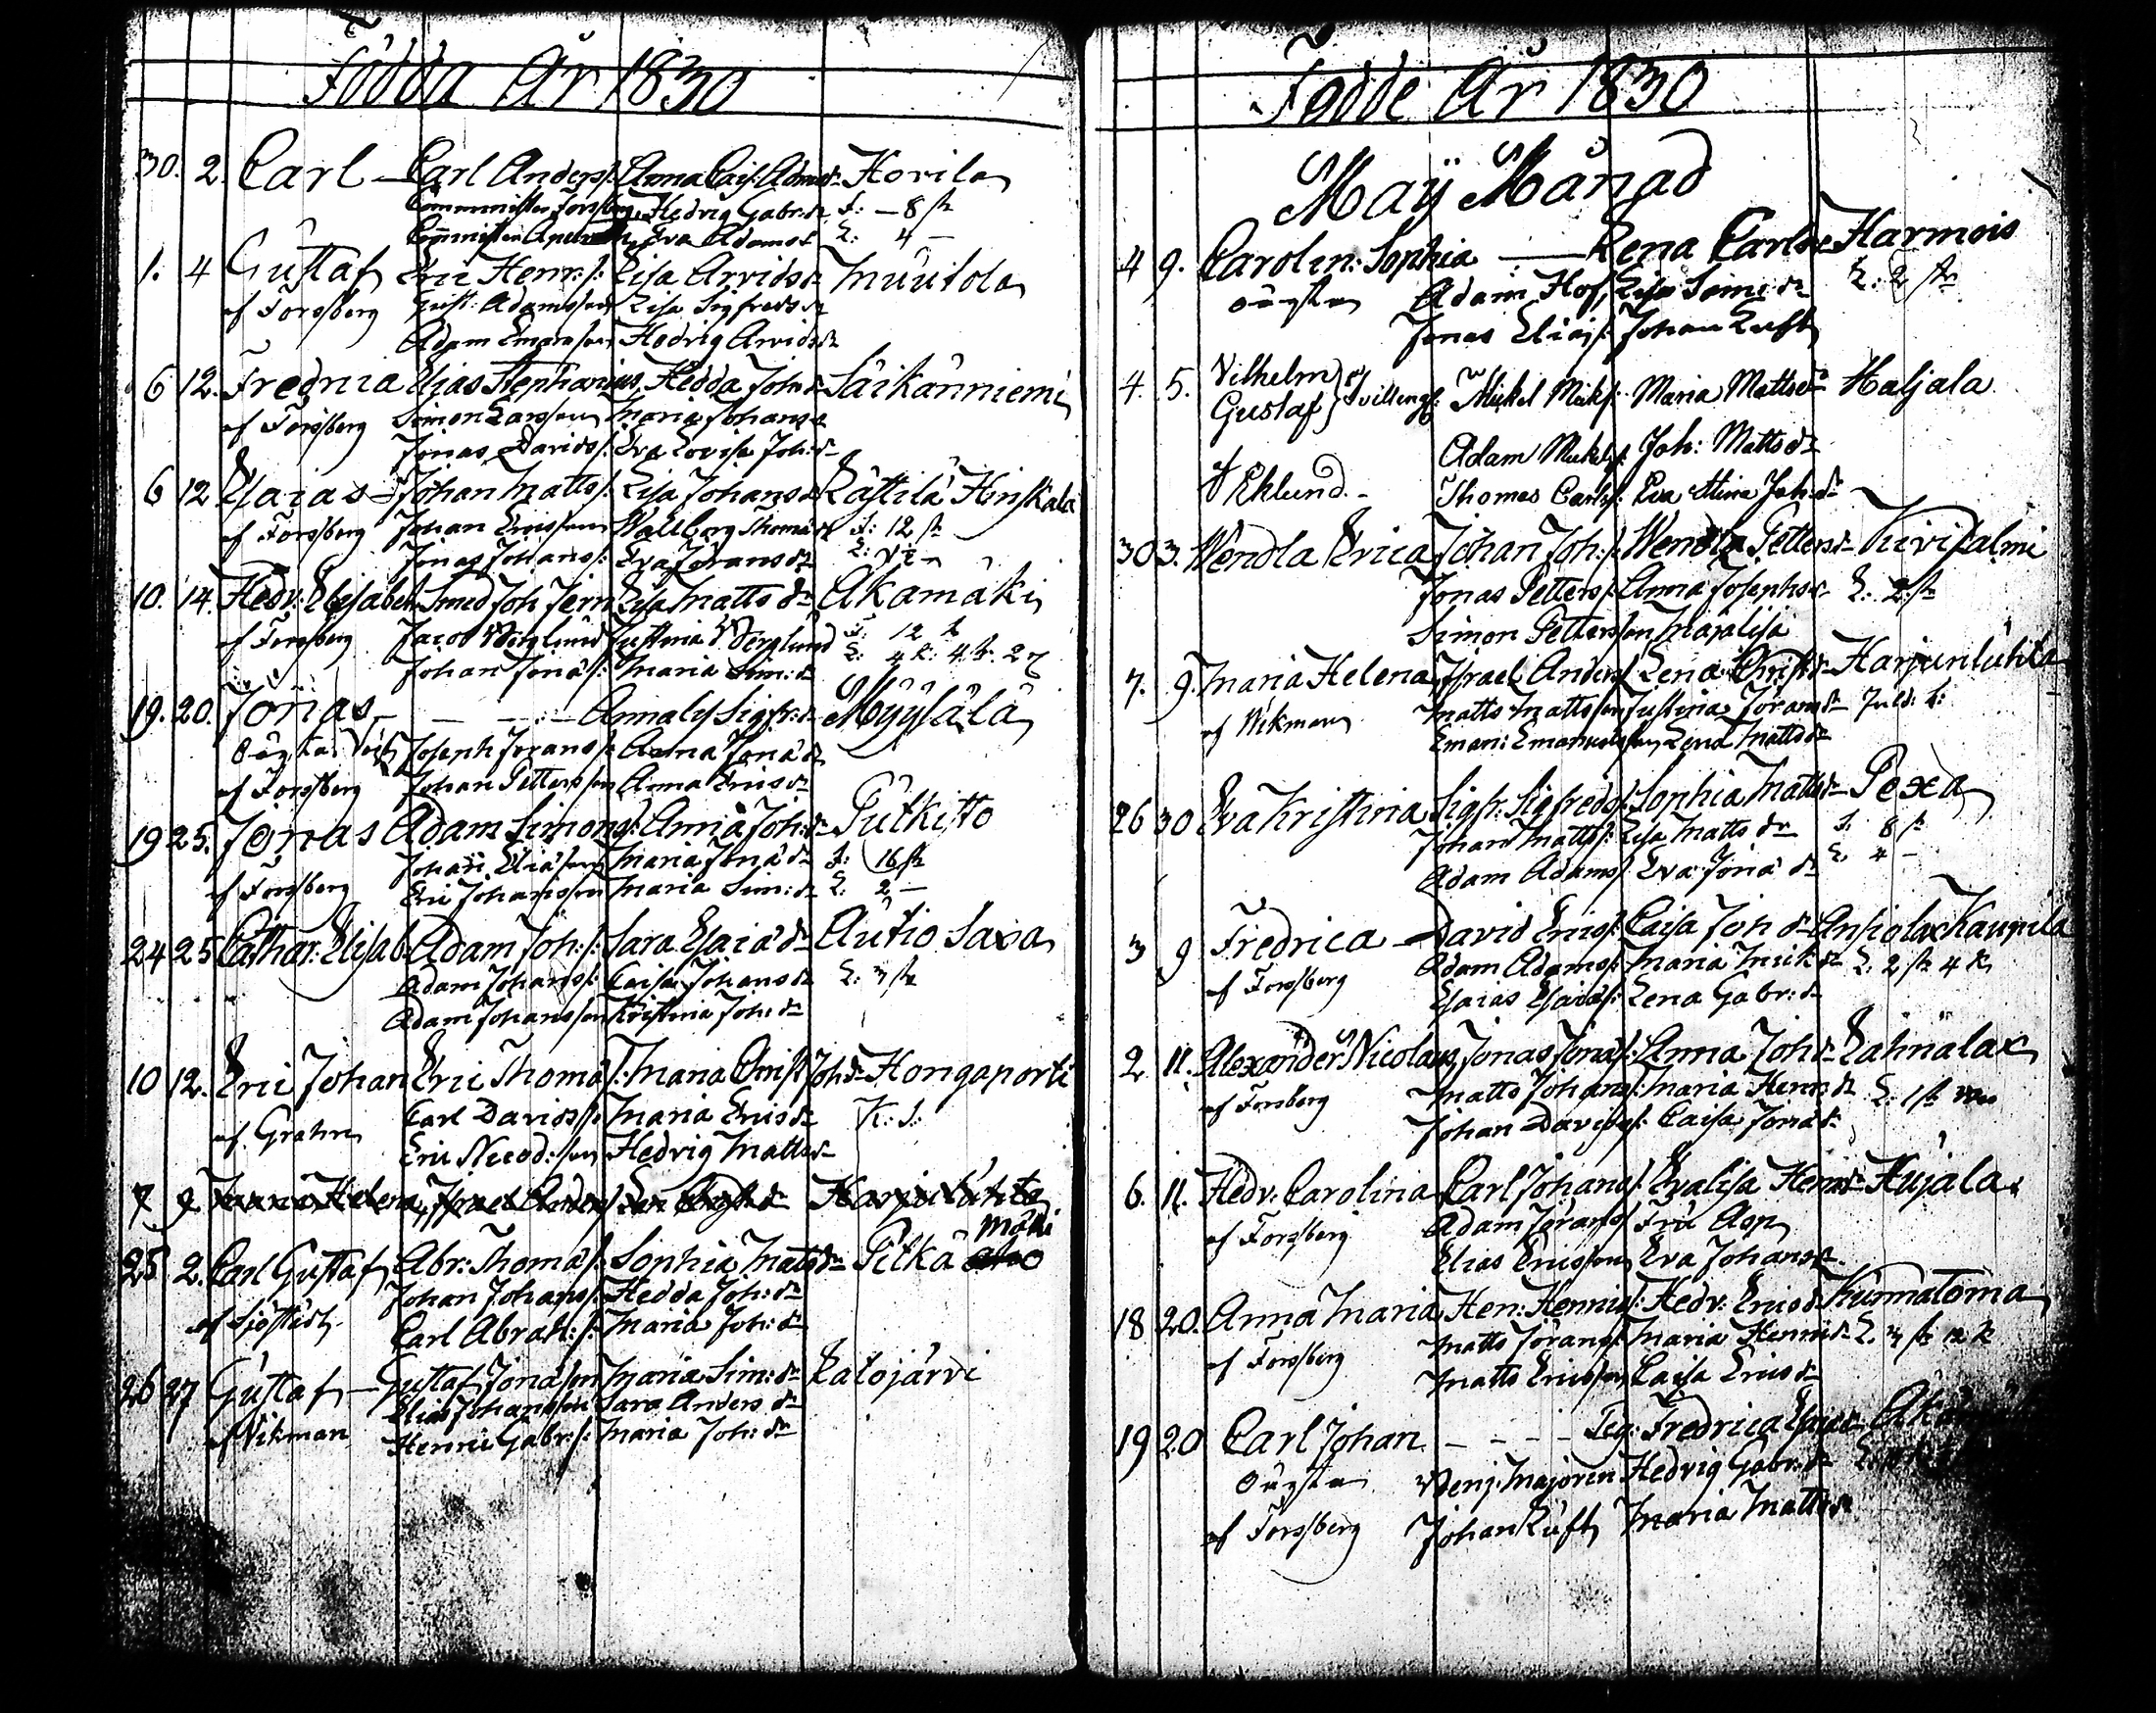 Födda År 1830
30. 2. Carl — Carl Anders: Anna Cais: Adams dr Hovila
Comminister Forsberg, Hedvig Gabr: dr S: — 8 sk
Eva Adams dr L: 4 —
1. 4 Gustaf Eric Henr: s: Lisa Arvids dr Muutola
af Forsberg Gust: Adamsson Lisa Sigfreds dr
Adam Emanson Hedvig Arvids dr
6 12. Fredrica Elias Stephanius, Hedda Joh: dr Säikänniemi
af Forsberg Simon Larsson Maria Johans dr
Jonas Davids s: Eva Lovisa Joh: dr
6 12 Esaias — Johan Matts s: Lisa Johans dr Rättilä Hinskala
af Forsberg Johan Ericsson Wallborg Thoma dr S: 12 sk
Jonas Johans s: Eva Jörans dr
10. 14. Hedv: Elisabeth Smed Joh Jern Lisa Matts dr Akamäki
af Forsberg Jacob Berglund Justina Berglund S: 12 k
Johan Jona s: Maria Sim: dr L: 4 k: 4 sk. 2
19. 20. Jonas — — — Annalis Sigfr: dr Myllylä
Oägta Joseph Jörans s: Anna Jona dr
af Forsberg Johan Pettersson Anna Erics dr
19 25. Jonas Adam Simons s: Anna Joh: dr Putkisto
Johan Eliasson Maria Jona dr S: 16 sk
af Forsberg Eric Johansson Maria Sim: dr L: 2 —
24 25 Cathar: Elisab: Adam Joh: s: Sara Esaia dr Autio Saxa
Adam Johans s: Caisa Johans dr L: 3 sk
Adam Johansson Kristina Joh: dr
10 12. Eric Johan Eric Thoma s: Maria Christ Joh dr Hongaporti
af Grahn Carl Davids s: Maria Erics dr K: S:
Eric Nicod: son Hedvig Matts dr
7 9 Maria Helena, Israel Anders s: Lena Christ dr Harjunluhta
mäki
25 2. Carl Gustaf Abr: Thoma s: Sophia Matts dr Pitkä
Johan Johans s: Hedda Joh: dr
af Sjöstedt Carl Abrah: s: Maria Joh: dr
26 27 Gustaf — Gustaf Jonason Maria Sim: dr Salojärvi
Elias Johansson Sara Anders dr
af Vikman Henric Gabr: s: Maria Joh: dr
Födde År 1830
Maÿ Månad
4 9. Carolin: Sophia — Lena Carls dr Harmois
oägta Adam Hof, Lisa Sim: dr L: 2 sk
Jonas Elias s: Johan Luft
4. 5. Vilhelm
Gustaf } tvilling: Mickel Mick s: Maria Matts dr Haljala
Adam Mickels s: Joh: Matts dr
af Eklund. — Thomas Carls s: Eva Stina Joh: dr
30 3. Wendla Erica Johan Joh: s: Wendla Petters dr Kivisalmi
Jonas Petters s: Anna Josephs dr L: 2 sk
Simon Pettersson Majalisa
7. 9. Maria Helena Israel Anders s: Lena Christ dr Harjunluhta
af Wikman Matts Mattsson Justina Jörans dr Juld: k:
Eman: Emanuelsson Lena Matts dr
26 30 Eva Kristina Sigfr: Sigfreds s: Sophia Matts dr Pexa
Johan Matts s: Lisa Matts dr S: 8 sk
Adam Adams s: Eva Jona dr L. 4 —
3 9 Fredrica — David Erics s: Caisa Joh dr Ansiolax Kaupila
Adam Adams s: Maria Mick dr L. 2 sk 4 k
af Forsberg Esaias Esaias s: Lena Gabr: dr
2 11. Alexander Nicolaus, Jonas Jona s: Anna Joh dr Lahnalax
af Forsberg Matts Johans s: Maria Henr: dr L. 1 sk
Johan Davids s: Caisa Jona dr
6. 11. Hedv: Carolina Carl Johans s: Evalisa Henr dr Kujala
af Forsberg Adam Jörans s: Fru Asp
Elias Ericsson Eva Johans dr
18 20. Anna Maria Hen: Henrics s: Hedv: Erics dr Kummatoma
af Forsberg Matts Jörans s: Maria Henrics dr L. 3 sk 12 k
Matts Ericsson Caisa Erics dr
19 20 Carl Johan — — — Pig: Fredrica Esaias dr
oägta Benj: Majoren Hedvig Gabr: dr
af Forsberg Johan Luft Maria Matts dr